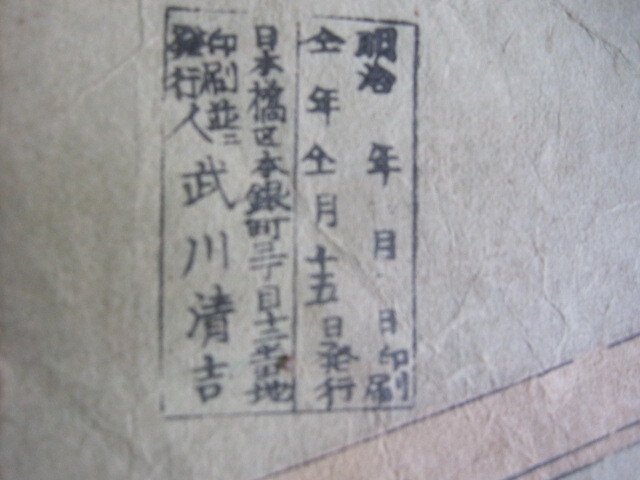 明治 年 月 日印刷
仝年仝月十五日発行
日本橋区本銀町三丁目十二番地
印刷並ニ
発行人 武川清吉